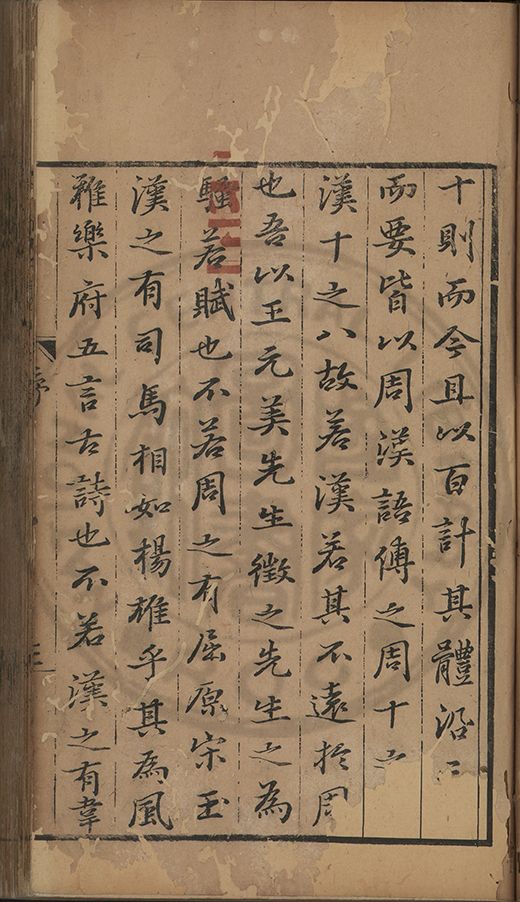 十則而今且以百計其體沿
而要皆以周漢語傅之周十
漢十之八故若漢若其不遠於周
也吾以王元美先生徵之先生之為
騷若賦也不若周之有屈原宋玉
漢之有司馬相如楊雄乎其為風
雅樂府五言古詩也不若漢之有韋
序